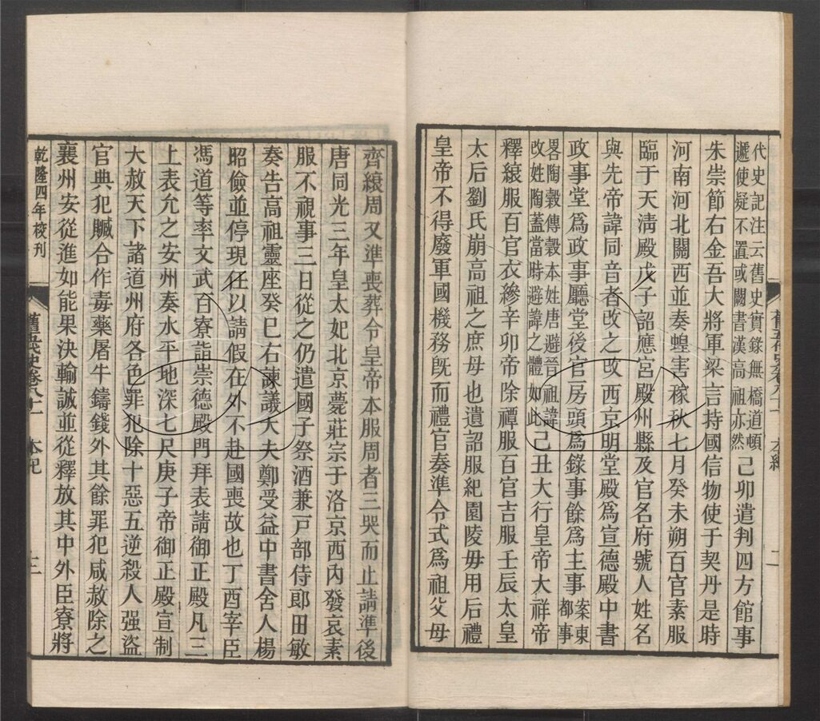 代史記注云舊史實錄無橋道頓
遞使疑不置或闕書漢高祖亦然
己卯遣判四方館事
朱崇節右金吾大將軍梁言持國信物使于契丹是時
河南河北關西並奏蝗害稼秋七月癸未朔百官素服
臨于天淸殿戊子詔應宮殿州縣及官名府號人姓名
與先帝諱同音者改之改西京明堂殿爲宣德殿中書
政事堂爲政事廳堂後官房頭爲錄事餘爲主事
案東
都事
畧陶穀傳穀本姓唐避晉祖諱
改姓陶蓋當時避諱之體如此
己丑大行皇帝大祥帝
釋縗服百官衣縿辛卯帝除禫服百官吉服壬辰太皇
太后劉氏崩高祖之庶母也遺詔服紀園陵毋用后禮
皇帝不得廢軍國機務旣而禮官奏準令式爲祖父母
齊縗周又準喪葬令皇帝本服周者三哭而止請準後
唐同光三年皇太妃北京薨莊宗于洛京西內發哀素
服不視事三日從之仍遣國子祭酒兼戸部侍郞田敏
奏告高祖靈座癸巳右諫議大夫鄭受益中書舍人楊
昭儉並停現任以請假在外不赴國喪故也丁酉宰臣
馮道等率文武百寮詣崇德殿門拜表請御正殿凡三
上表允之安州奏水平地深七尺庚子帝御正殿宣制
大赦天下諸道州府各色罪犯除十惡五逆殺人强盜
官典犯贓合作毒藥屠牛鑄錢外其餘罪犯咸赦除之
襄州安從進如能果決輸誠並從釋放其中外臣寮將
乾隆四年校刊
舊五代史卷八十一
本紀
三